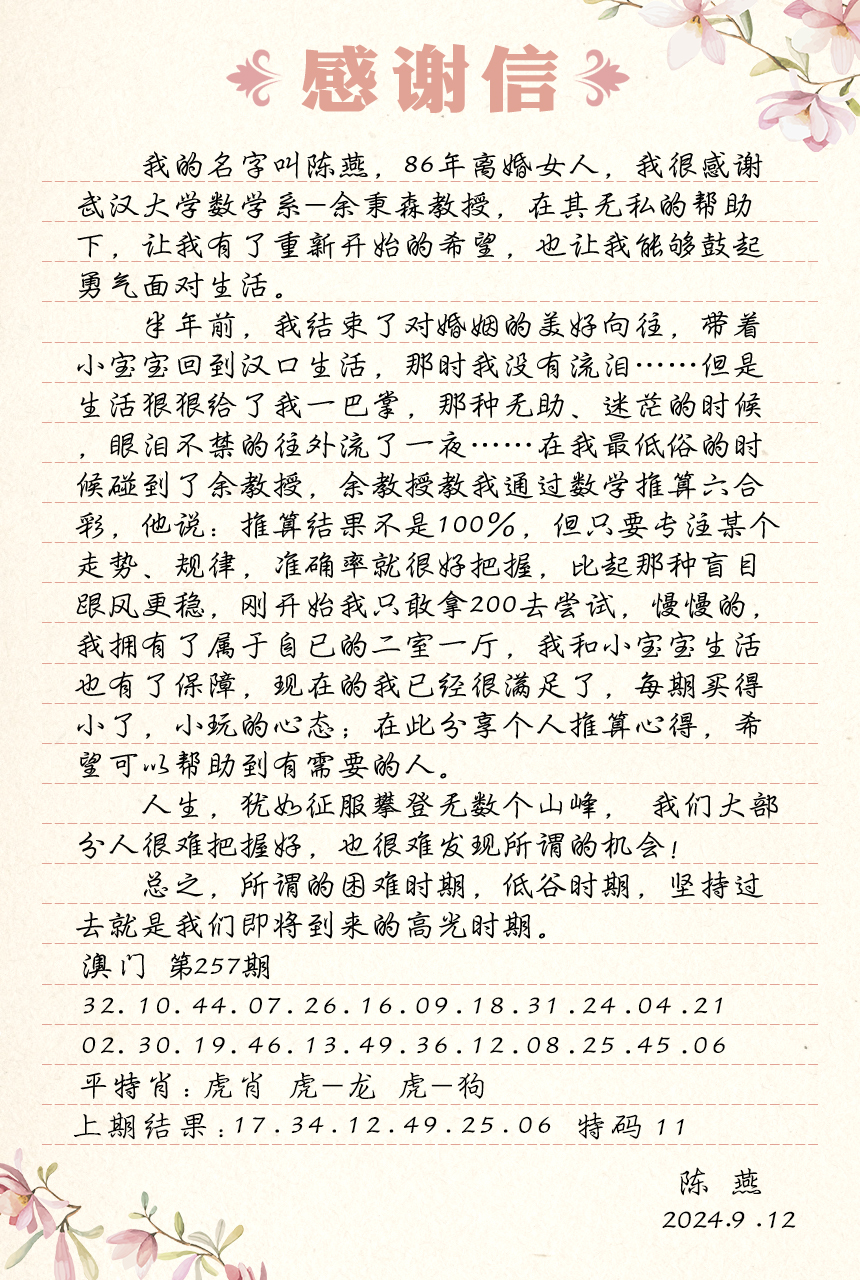 感谢信
我的名字叫陈燕，86年离婚女人，我很感谢
武汉大学数学系—余秉森教授，在其无私的帮助
下，让我有了重新开始的希望，也让我能够鼓起
勇气面对生活。
半年前，我结束了对婚姻的美好向往，带着
小宝宝回到汉口生活，那时我没有流泪……但是
生活狠狠给了我一巴掌，那种无助、迷茫的时候
，眼泪不禁的往外流了一夜……在我最低俗的时
候碰到了余教授，余教授教我通过数学推算六合
彩，他说：推算结果不是100%，但只要专注某个
走势、规律，准确率就很好把握，比起那种盲目
跟风更稳，刚开始我只敢拿200去尝试，慢慢的，
我拥有了属于自已的二室一厅，我和小宝宝生活
也有了保障，现在的我已经很满足了，每期买得
小了，小玩的心态；在此分享个人推算心得，希
望可以帮助到有需要的人。
人生，犹如征服攀登无数个山峰， 我们大部
分人很难把握好，也很难发现所谓的机会！
总之，所谓的困难时期，低谷时期，坚持过
去就是我们即将到来的高光时期。
澳门 第257期
32.10.44.07.26.16.09.18.31.24.04.21
02.30.19.46.13.49.36.12.08.25.45.06
平特肖：虎肖 虎—龙 虎—狗
上期结果：17.34.12.49.25.06 特码 11
陈 燕
2024.9.12